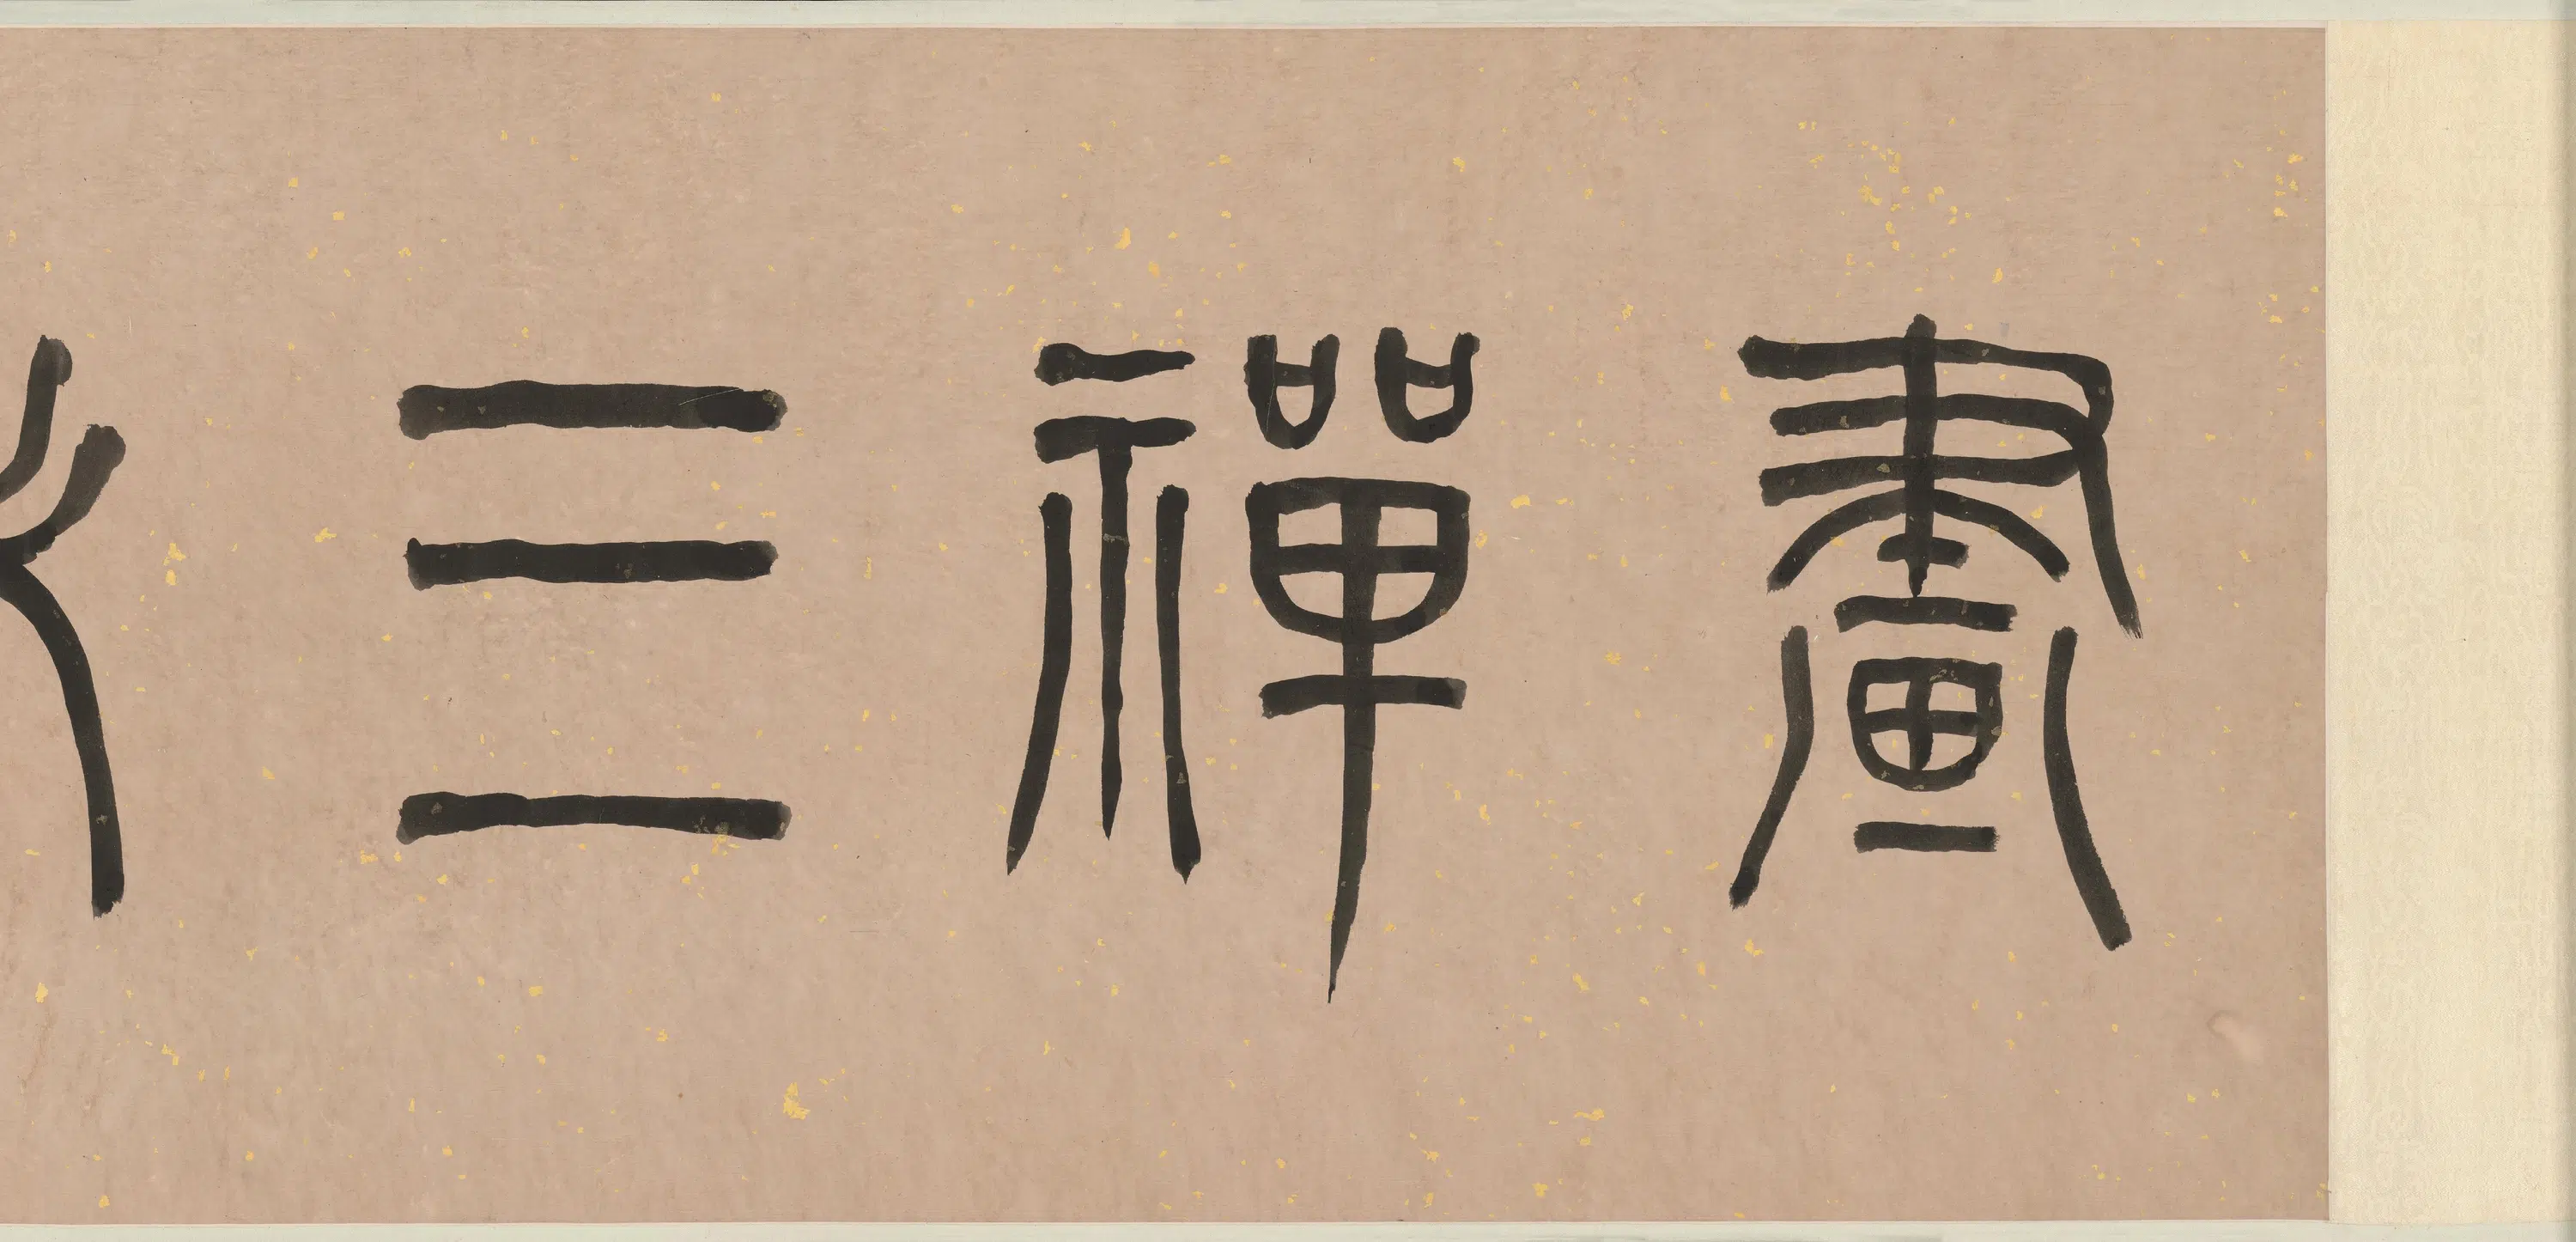 畫禪三